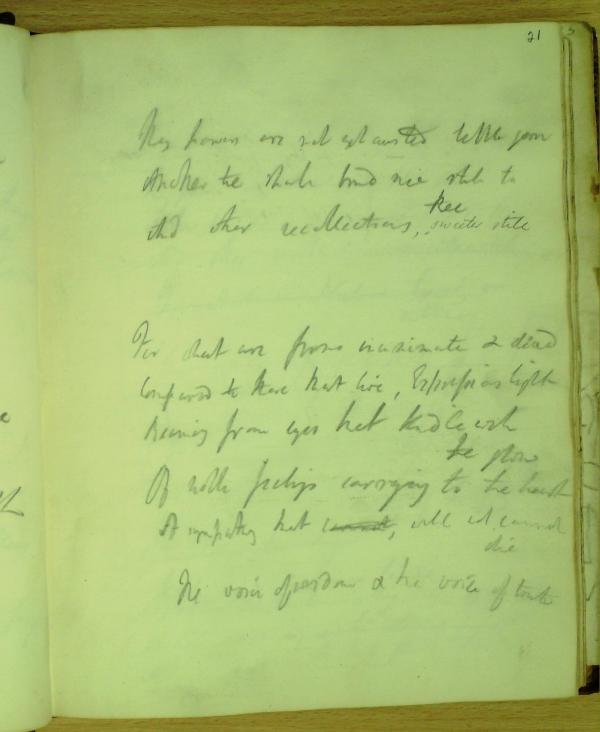 21
powers are not exhausted
Another tie shall bind me still to
And other recollections, sweeter still
thee
For what are forms inanimate & dead
Compared to those that live, Expression's light
Beaming from eyes that kindle with
the glow
Of noble feelings carrying to the heart
A sympathy that cannot, will it cannot
die
The voice of wisdom & the voice of truth